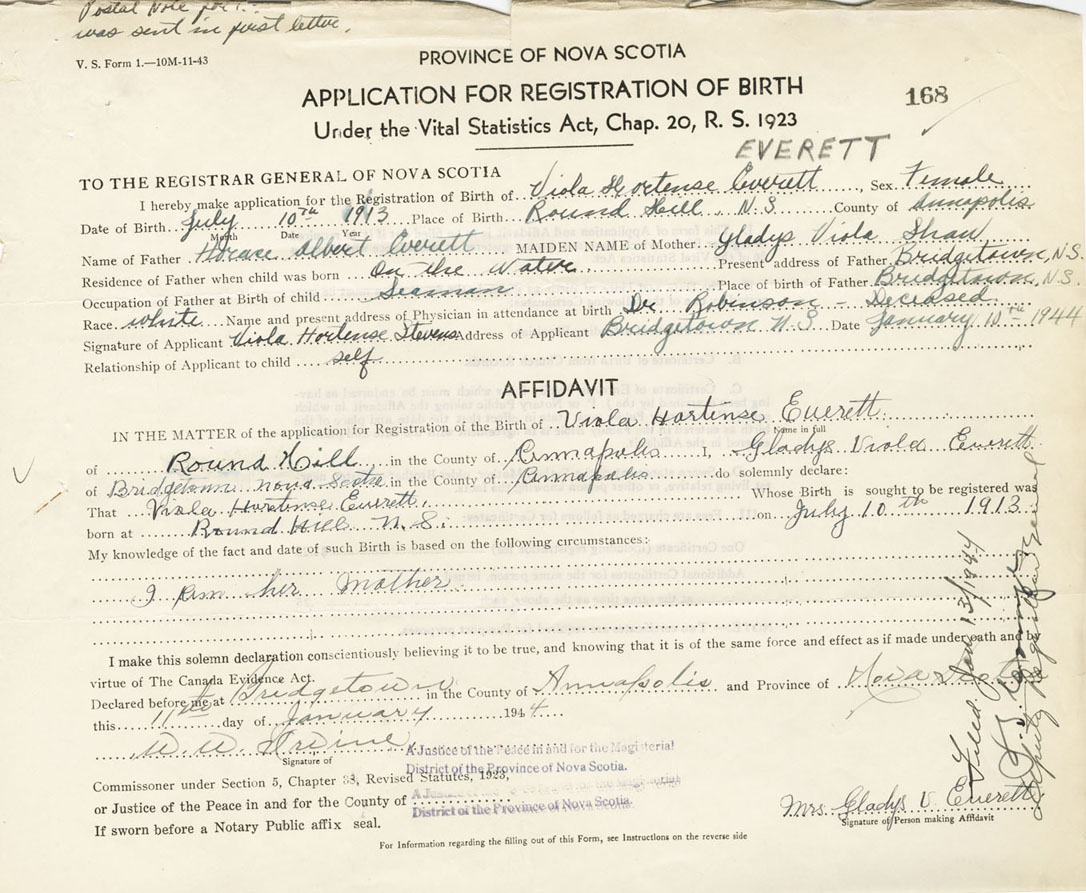 Postal Note for
was sent in first letter.
V. S. Form 1.—10M-11-43
PROVINCE OF NOVA SCOTIA
APPLICATION FOR REGISTRATION OF BIRTH
168
Under the Vital Statistics Act, Chap. 20, R. S. 1923
EVERETT
TO THE REGISTRAR GENERAL OF NOVA SCOTIA
I hereby make application for the Registration of Birth of Viola Hortense Everett, Sex. Female
Date of Birth July 10th 1913 Place of Birth Round Hill, N.S. County of Annapolis
Month Date Year
Name of Father Horace Albert Everett MAIDEN NAME of Mother Gladys Viola Shaw
Residence of Father when child was born On the Water Present address of Father Bridgetown, N.S.
Occupation of Father at Birth of child Seaman Place of birth of Father Bridgetown, N.S.
Race white Name and present address of Physician in attendance at birth Dr. Robinson - Deceased
Signature of Applicant Viola Hortense Stevens Address of Applicant Bridgetown N.S. Date January 10th 1944
Relationship of Applicant to child self
AFFIDAVIT
IN THE MATTER of the application for Registration of the Birth of Viola Hortense Everett
Name in full
of Round Hill in the County of Annapolis I, Gladys Viola Everett
of Bridgetown Nova Scotia in the County of Annapolis do solemnly declare:
That Viola Hortense Everett, Whose Birth is sought to be registered was
born at Round Hill N.S. on July 10th 1913
My knowledge of the fact and date of such Birth is based on the following circumstances:
I am her Mother
I make this solemn declaration conscientiously believing it to be true, and knowing that it is of the same force and effect as if made under oath and by
virtue of The Canada Evidence Act.
Declared before me at Bridgetown in the County of Annapolis and Province of Nova Scotia
this 11th day of January 1944
Signature of
A Justice of the Peace in and for the Magisterial
District of the Province of Nova Scotia.
Commissioner under Section 5, Chapter 38, Revised Statutes, 1923,
or Justice of the Peace in and for the County of
District of the Province of Nova Scotia.
If sworn before a Notary Public affix seal.
Mrs. Gladys V. Everett
Signature of Person making Affidavit
For Information regarding the filling out of this Form, see Instructions on the reverse side
Filed Jan. 13/1944
Deputy Registrar General